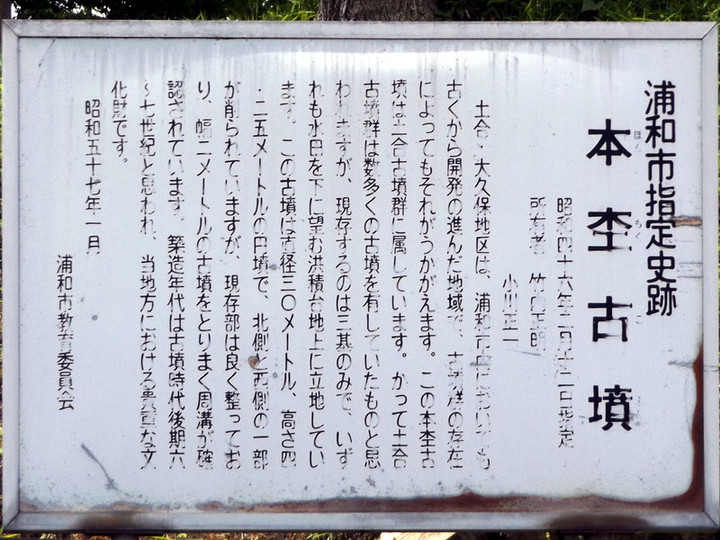 浦和市指定史跡
本杢古墳
ほんもくこ
昭和四十六年二月十二日指定
所有者 竹内正明
小川正二
土合・大久保地区は、浦和市内においても
古くから開発の進んだ地域で、古墳群の存在
によってもそれがうかがえます。この本杢古
墳は土合古墳群に属しています。かつて土合
古墳群は数多くの古墳を有していたものと思
われますが、現存するのは三基のみで、いず
れも水田を下に望む洪積台地上に立地してい
ます。この古墳は直径三〇メートル、高さ四
・二五メートルの円墳で、北側と西側の一部
が削られていますが、現存部は良く整ってお
り、幅二メートルの古墳をとりまく周溝が確
認されています。築造年代は古墳時代後期六
〜七世紀と思われ、当地方における貴重な文
化財です。
昭和五十七年一月
浦和市教育委員会